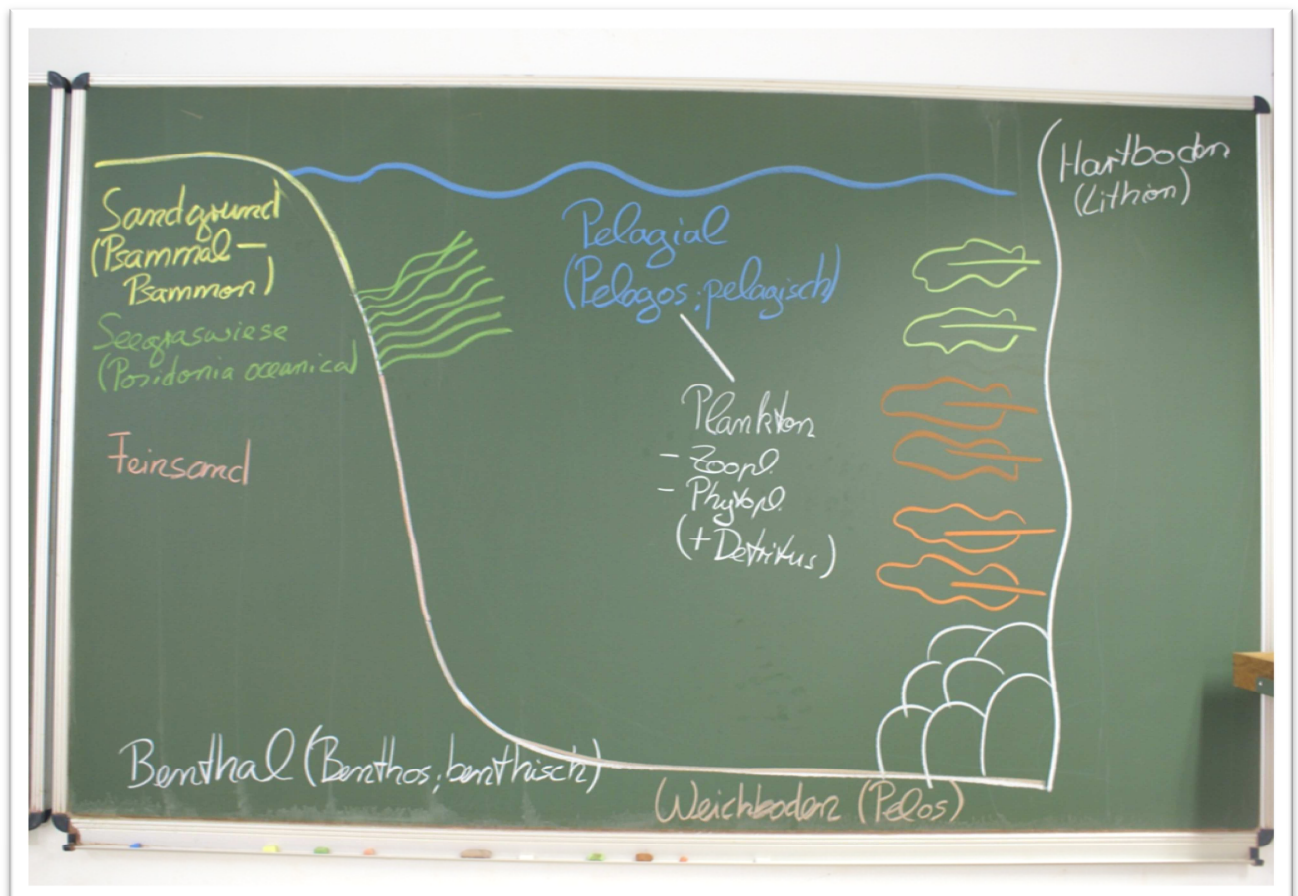 Sandgrund
(Psammal-
Psammon)
Seegraswiese
(Posidonia oceanica)
Feinsand
Pelagial
(Pelagos; pelagisch)
Plankton
- Zoopl.
- Phytopl.
(+ Detritus)
Hartboden
(Lithion)
Benthal (Benthos; benthisch)
Weichboden (Pelos)